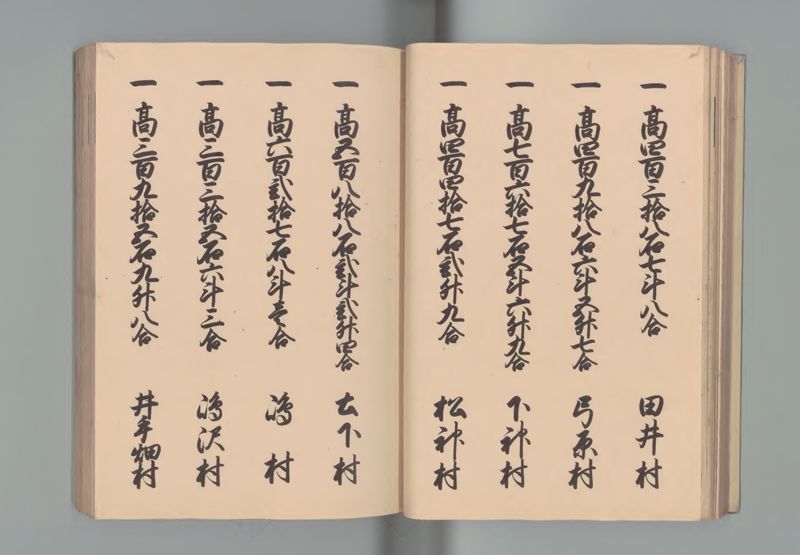 一 髙四百三拾八石七斗八合 田井村
一 髙四百九拾八石六斗五升七合 弓原村
一 髙七百六拾七石五斗六升九合 下神村
一 髙四百四拾七石弐升九合 松神村
一 髙五百八拾八石弐斗弐升四合 土下村
一 髙六百弐拾七石八斗壱合 嶋村
一 髙三百三拾五石六斗三合 嶋沢村
一 髙三百九拾五石九升八合 井手畑村